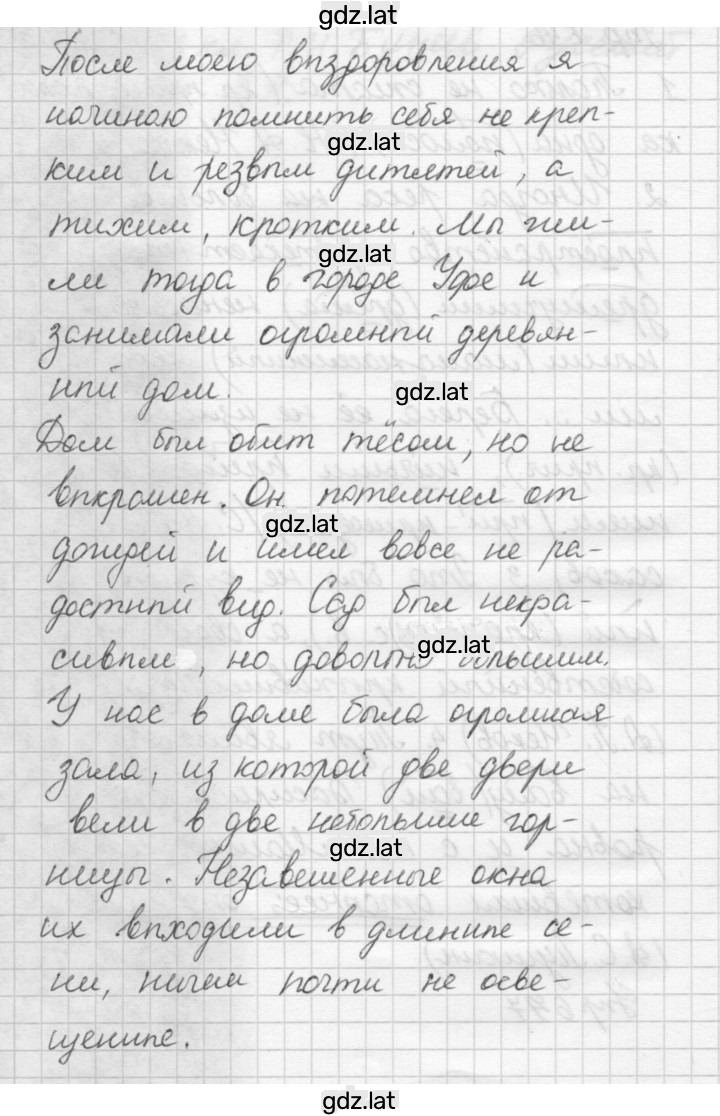 gdz.lat
После моего выздоровления я
начиною помнить себя не креп-
gdz.lat
ким и резвым дитятей, а
тихим, кротким. Мы жи-
gdz.lat
ли тогда в городе Уфе и
занимали огромный деревян-
ный дом.
gdz.lat
Дом был обит тёсом, но не
выкрашен. Он потемнел от
gdz.lat
дождей и имел вовсе не ра-
достный вид. Сад был некра-
gdz.lat
сивым, но довольно большим.
У нас в доме была огромная
зала, из которой две двери
вели в две небольшие гор-
gdz.lat
ницы. Незавешенные окна
их выходили в длинные се-
ни, ничем почти не осве-
щенные.
gdz.lat